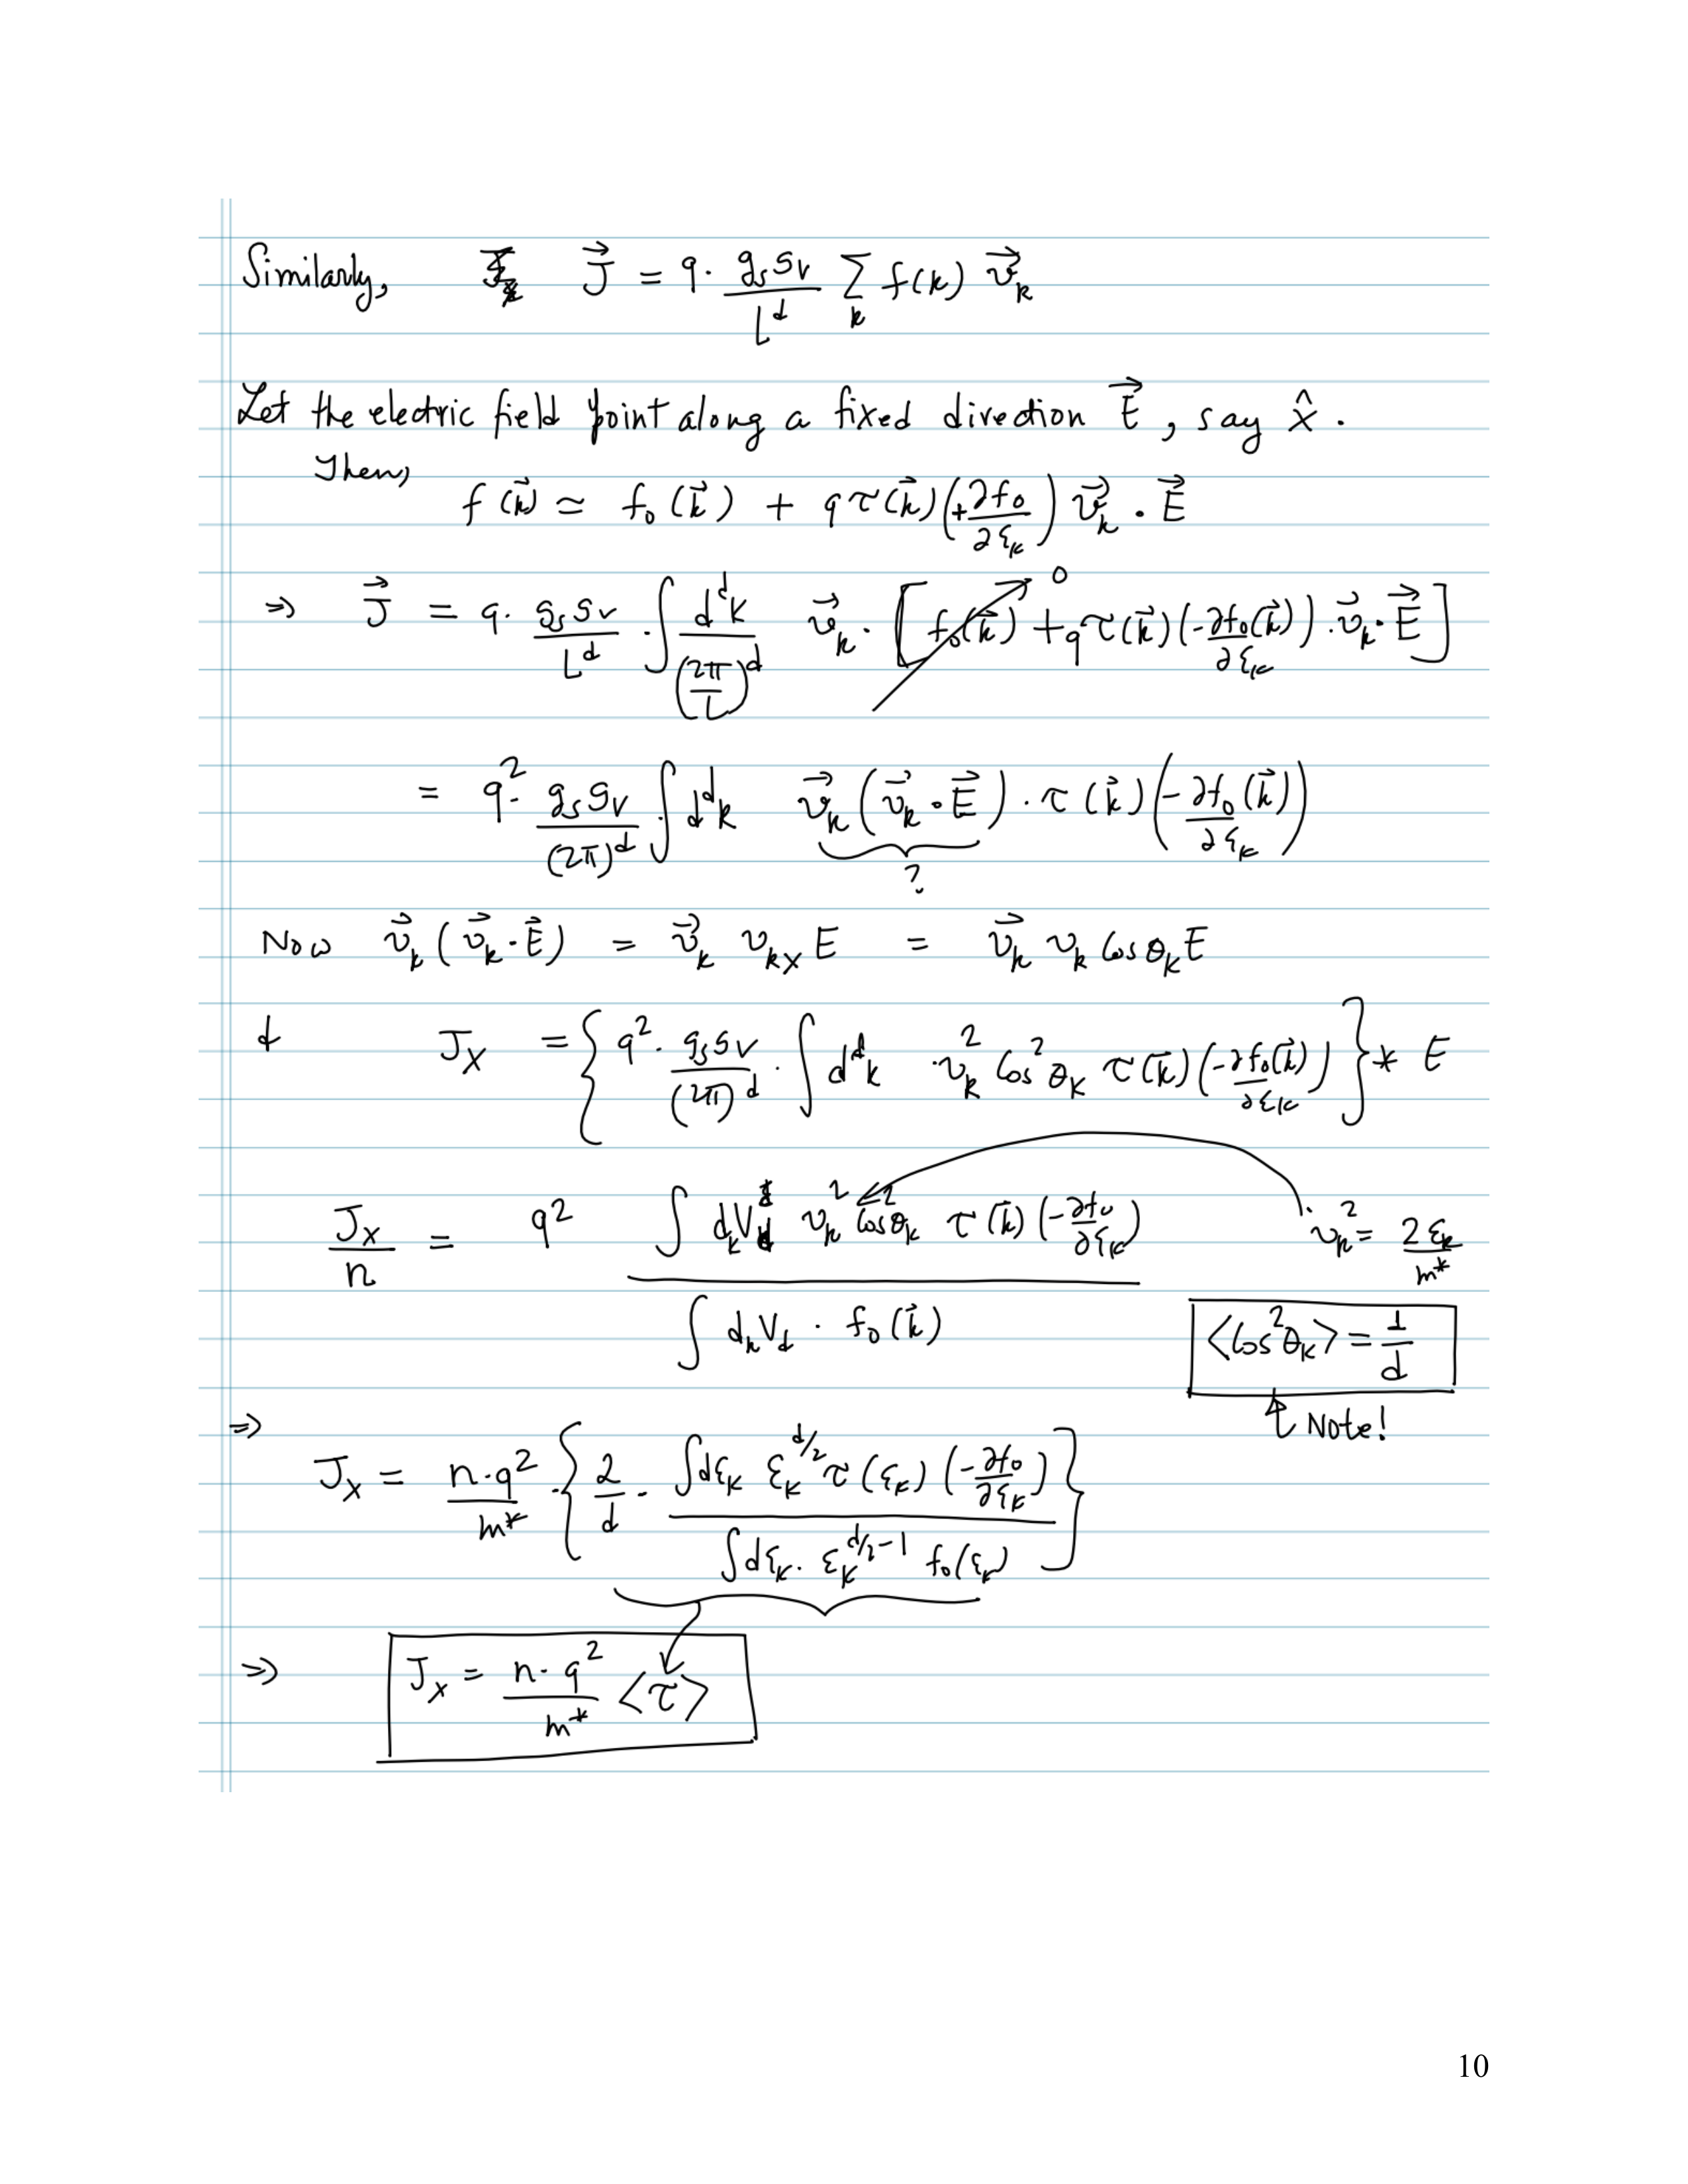 Similarly, J⃗ = q · g_s g_v / L^d Σ_k f(k) v⃗_k
Let the electric field point along a fixed direction E⃗, say x̂.
Then,
f(k⃗) ≃ f_0(k⃗) + qτ(k⃗)(+∂f_0/∂ε_k) v⃗_k · E⃗
⇒ J⃗ = q · g_s g_v / L^d · ∫ d^d k / (2π/L)^d v⃗_k · [f_0(k⃗) → 0 + qτ(k⃗)(-∂f_0(k⃗)/∂ε_k) · v⃗_k · E⃗]
= q² · g_s g_v / (2π)^d · ∫ d^d k v⃗_k (v⃗_k · E⃗) · τ(k⃗) (-∂f_0(k⃗)/∂ε_k)
?
Now v⃗_k (v⃗_k · E⃗) = v⃗_k v_kx E = v⃗_k v_k Cosθ_k E
& J_x = {q² · g_s g_v / (2π)^d · ∫ d^d k · v_k² Cos²θ_k τ(k⃗) (-∂f_0(k⃗)/∂ε_k)} * E
J_x / n = q² ∫ d_k V_d v_k² Cos²θ_k τ(k⃗) (-∂f_0/∂ε_k) / ∫ d_k V_d · f_0(k⃗) v_k² = 2ε_k / m*
<Cos²θ_k> = 1/d
↑ Note!
⇒
J_x = n·q² / m* · {2/d · ∫dε_k ε_k^{d/2} τ(ε_k) (-∂f_0/∂ε_k) / ∫dε_k · ε_k^{d/2-1} f_0(ε_k)}
⇒ J_x = n·q² / m* <τ>
10